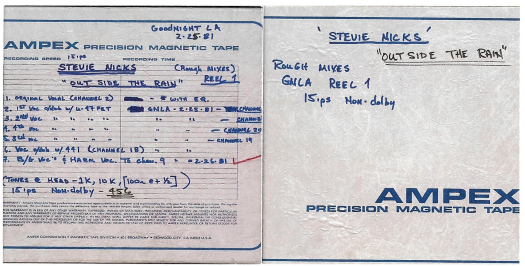 GOODNIGHT LA
2-25-81
AMPEX PRECISION MAGNETIC TAPE
RECORDING SPEED 15 ips RECORDING TIME
STEVIE NICKS (Rough Mixes)
"OUT SIDE THE RAIN" REEL 1
1. ORIGINAL VOCAL (CHANNEL 2) - WITH EQ.
2. 1st Voc w/dub w/ U-47 FET GNLA - 2-25-81 - CHANNEL
3. 2nd Voc " " " " - CHANNEL
4. 4th Voc " " " " - CHANNEL 20
5. 3rd Voc " " " " - CHANNEL 19
6. Voc o/dub w/ 441 (CHANNEL 18)
7. B/G Voc's & HARM Voc. To chan. 9 02-26-81
(TONES @ HEAD - 1K, 10K, [100 @ + ½])
15 ips Non-dolby - 456
AMPEX CORPORATION MAGNETIC TAPE DIVISION • 401 BROADWAY • REDWOOD CITY, CA 94063 U.S.A.
'STEVIE NICKS'
"OUT SIDE THE RAIN"
ROUGH MIXES
GNLA REEL 1
15 ips Non-dolby
AMPEX
PRECISION MAGNETIC TAPE